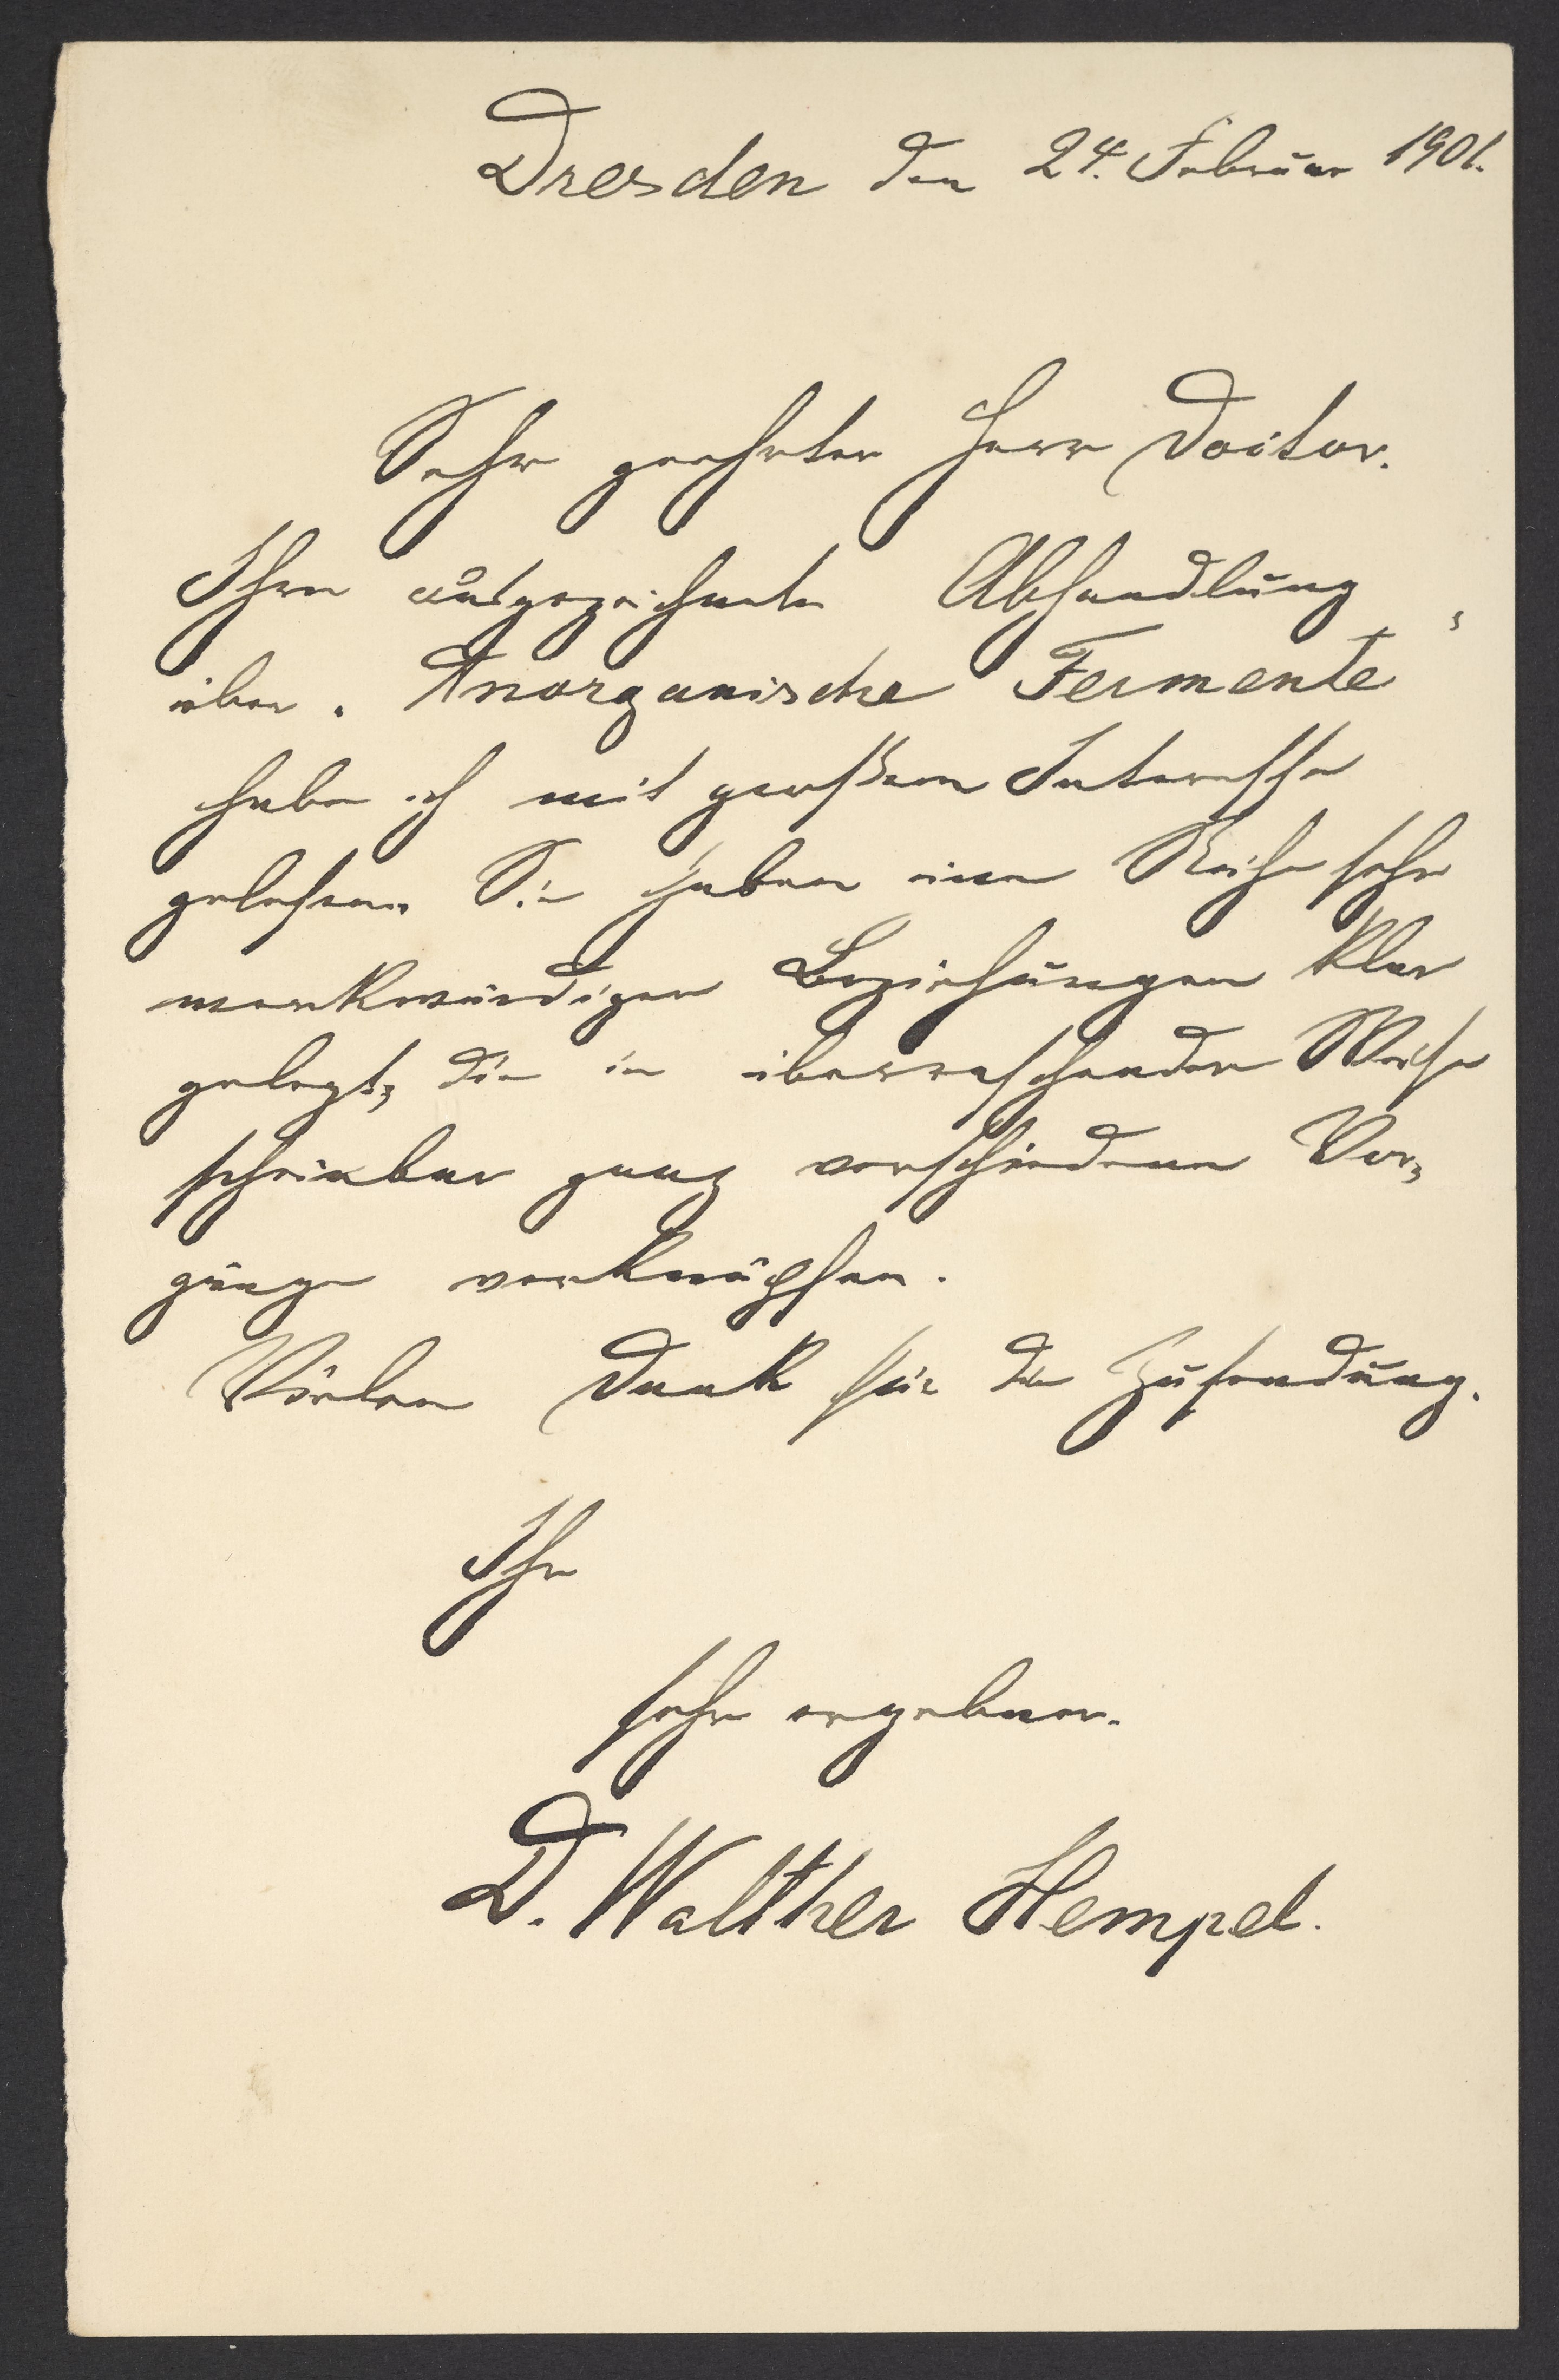 Dresden den 24. Februar 1901.
Sehr geehrter Herr Doctor.
Ihre ausgezeichnete Abhandlung
über „Anorganische Fermente“
habe ich mit großem Interesse
gelesen. Sie haben eine Reihe sehr
merkwürdiger Beziehungen klar
gelegt, die in überraschender Weise
scheinbar ganz verschiedene Vor-
gänge verknüpfen.
Vielen Dank für die Zusendung.
Ihr
sehr ergebener.
D. Walther Hempel.